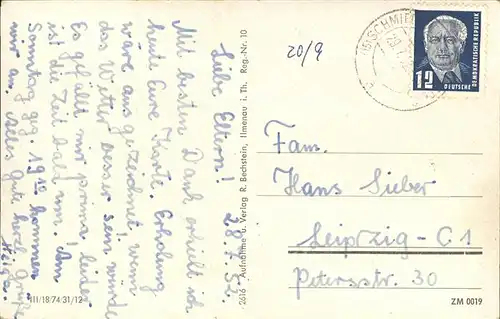 28.7.52.
Liebe Eltern!
Mit besten Dank erhielt ich
heute Eure Karte. Erholung
wäre ausgezeichnet, wenn
das Wetter besser sein würde
Es gefällt mir prima! leider
ist die Zeit bald um. Am
Sonntag geg. 19 10 kommen
wir an. Alles gute herzl. Grüße
Helga.
III/18/74 31/12
2616 Aufnahme u. Verlag R. Bechstein, Ilmenau i. Th. Reg.-Nr. 10
20/9
(15) SCHMIE
12
DEUTSCHE
DEMOKRATISCHE REPUBLIK
Fam.
Hans Sieber
Leipzig-C1
Petersstr. 30
ZM 0019